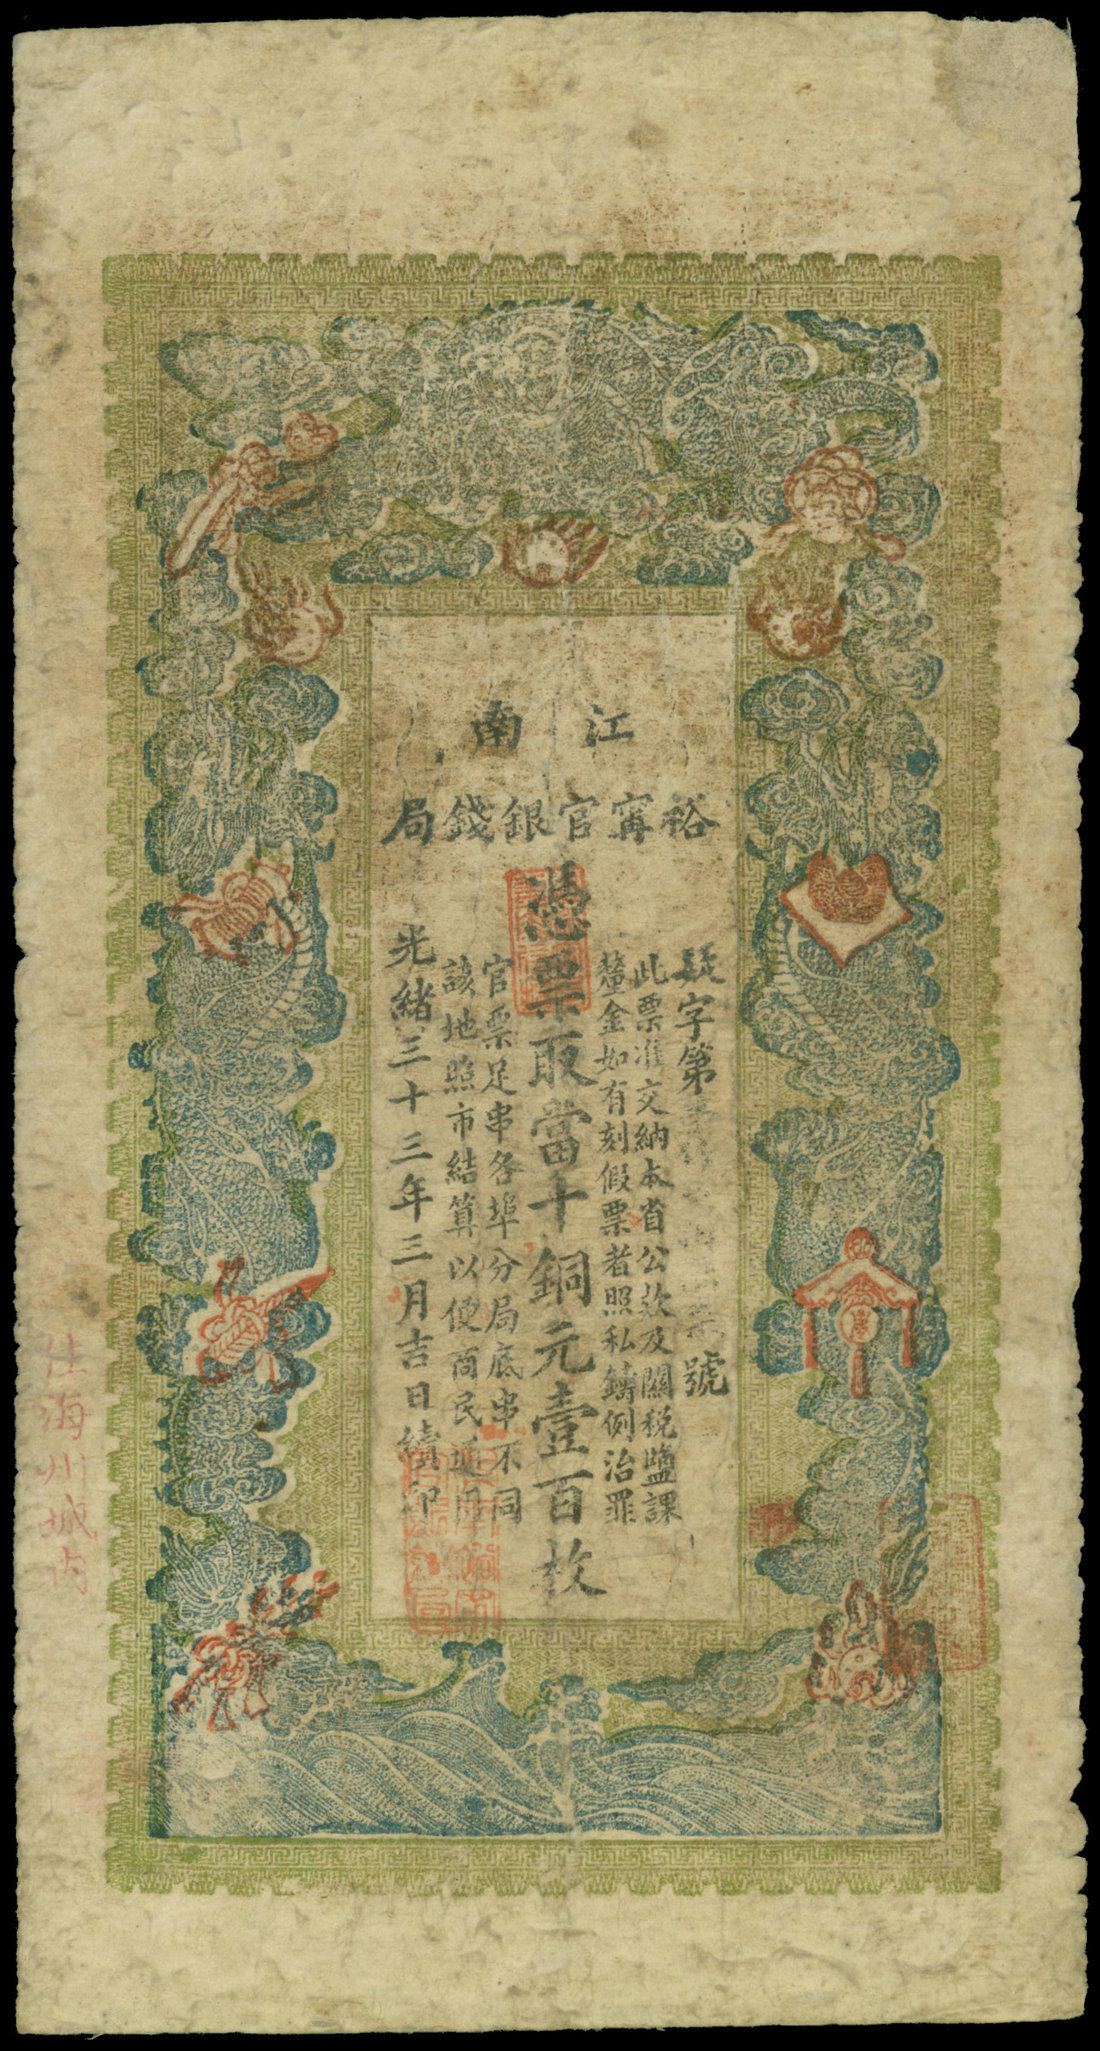 江南
裕甯官銀錢局
字第
號
此票准交納本省公款及關稅鹽課
釐金如有刻假票者照私鑄例治罪
憑票取當十銅元壹百枚
官票足串各埠分局底串不同
該地照市結算以便商民通用
光緒三十三年三月吉日續印
海州城內